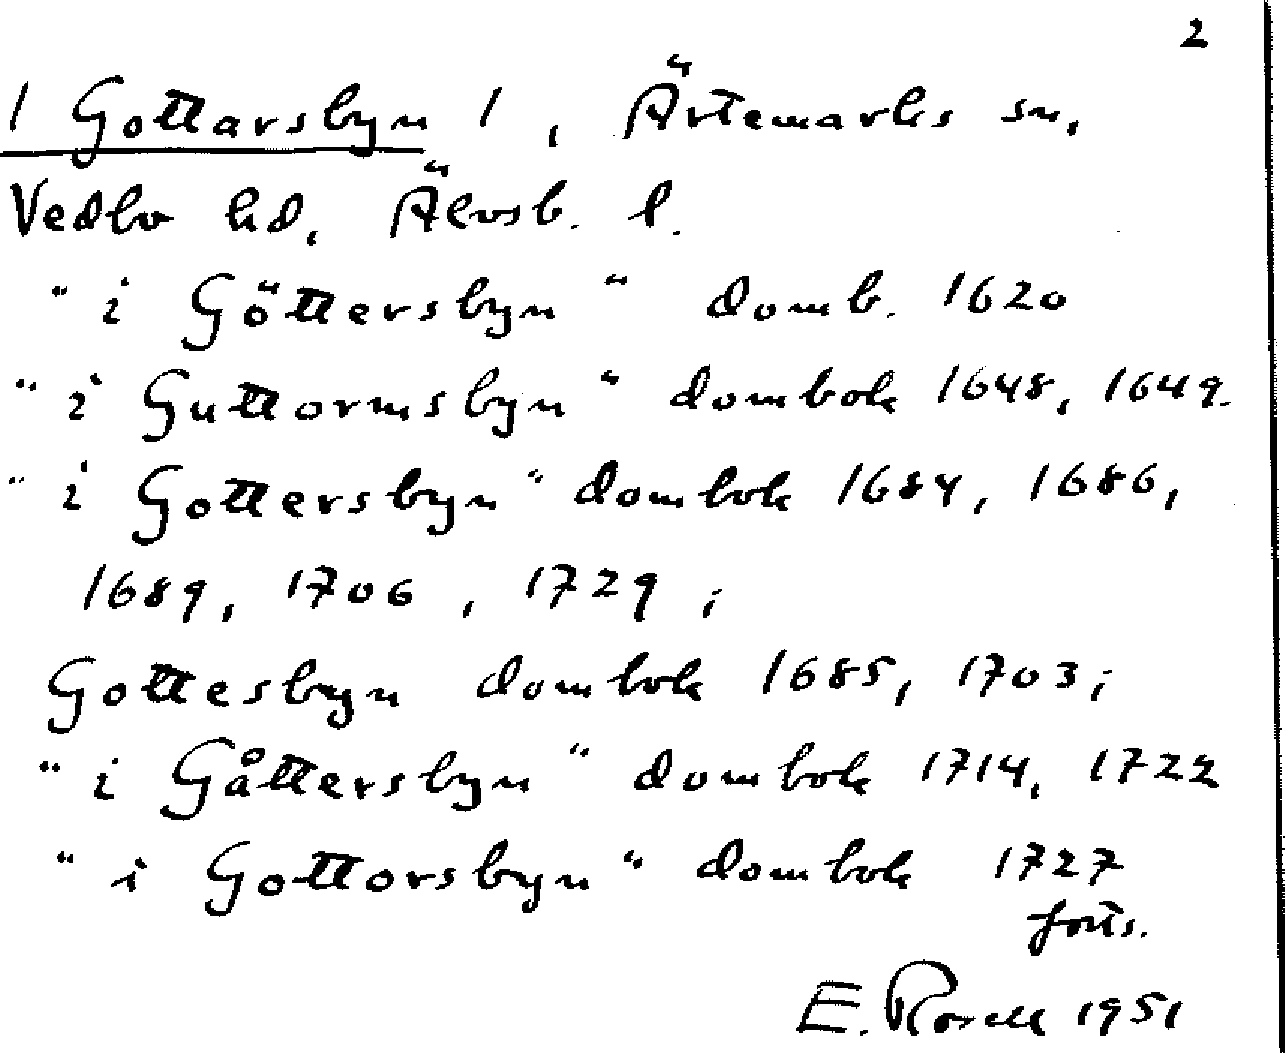 2
/ Gottarsbyn /, Ärtemarks sn,
Vedbo hd, Älvsb. l.
"i Göttersbyn" domb. 1620
"i Guttormsbyn" dombok 1648, 1649.
"i Gottersbyn" dombok 1684, 1686,
1689, 1706, 1729;
Gottesbyn dombok 1685, 1703;
"i Gåttersbyn" dombok 1714, 1722
"i Gottorsbyn" dombok 1727
forts.
E. Rosell 1951